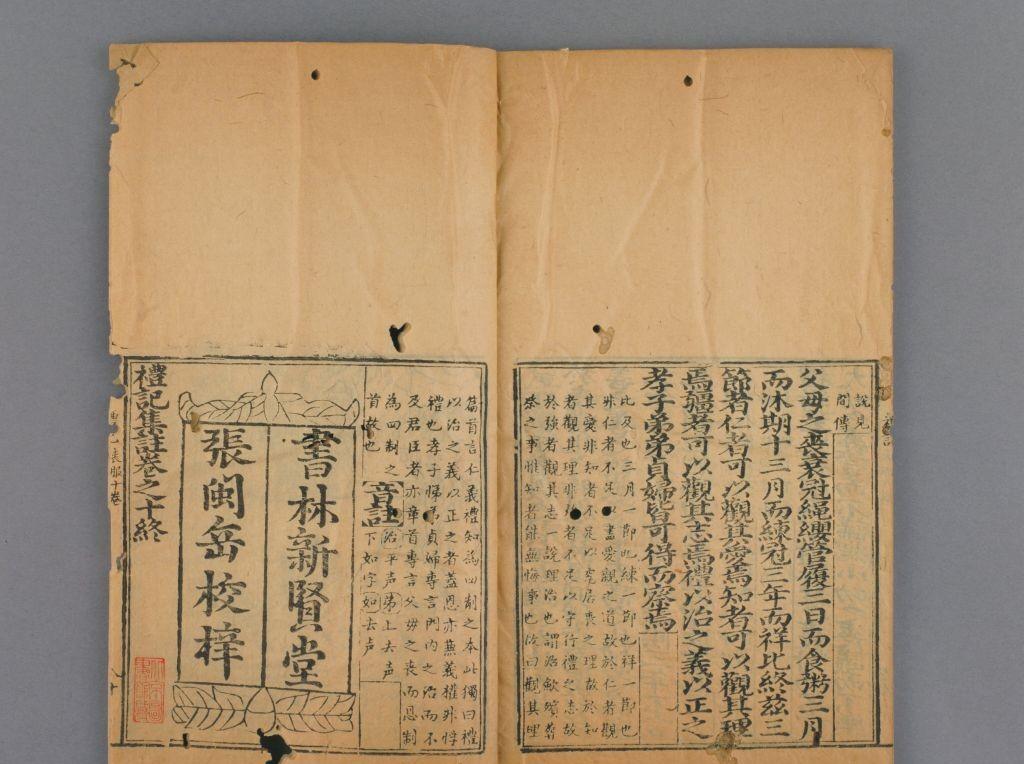 說見
間傳
父母之喪衰冠繩纓菅屨三日而食粥三月
而沐期十三月而練冠三年而祥比終茲三
節者仁者可以觀其愛焉知者可以觀其理
焉彊者可以觀其志焉禮以治之義以正之
孝子弟弟貞婦皆可得而察焉
比及也三月一節也練一節也祥一節也
非仁者不足以盡愛觀之道故於仁者觀
其愛非知者不足以究居喪之理故於知
者觀其理非強者不足以守行禮之志故
於強者觀其志一說理治也謂治斂殯葬
祭之事惟知者能無悔事也故曰觀其理
篇首言仁義禮知為四制之本此獨曰禮
以治之義以正之者蓋恩亦兼義權非悖
禮也孝子悌弟貞婦專言門內之治而不
及君臣者亦章首專言父母之喪而恩制
為四制之
首故也
音註
治平声弟上去声
下如字如去声
書林新賢堂
張閩岳校梓
禮記集註卷之十終